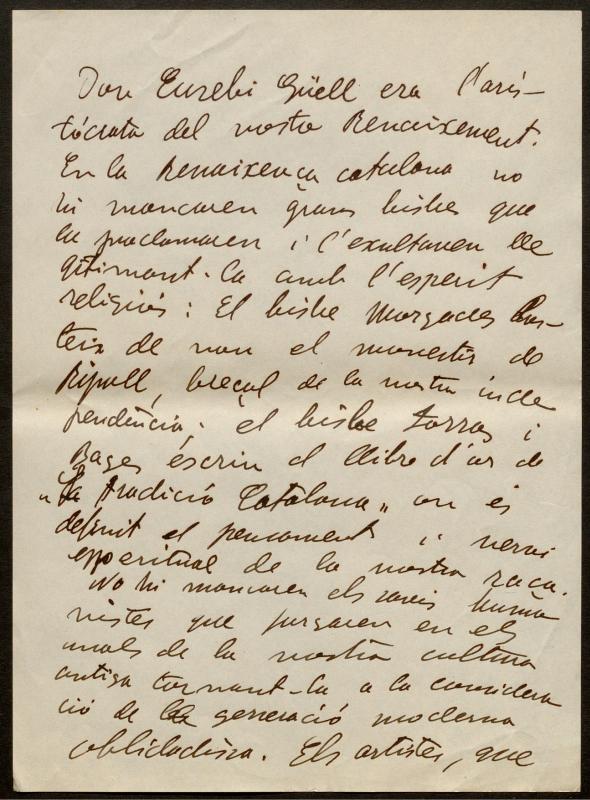 Don Eusebi Güell era l'aris-
tócrata del nostre Renaixement.
En la Renaixença catalana no
hi mancaren grans bisbes que
la proclamaren i l'exaltaren lle
gitimant-la amb l'esperit
religiós: El bisbe Morgades bas-
teix de nou el monestir de
Ripoll, breçol de la nostra inde
pendència; el bisbe Torras i
Bages escriu el llibre d'or de
"La tradició Catalana" on és
definit el pensament i nervi
espiritual de la nostra raça.
No hi mancaren els savis huma
nistes que furgaren en els
anals de la nostra cultura
antiga tornant-la a la considera
ció de la generació moderna
oblidadissa. Els artistes, que